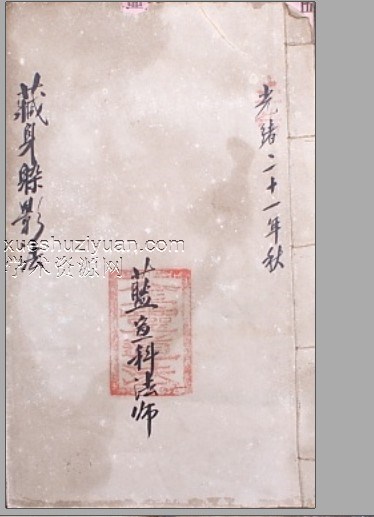 光绪二十一年秋
藍科法师
藏身躲影法
xueshuziyuan.com
学术资源网